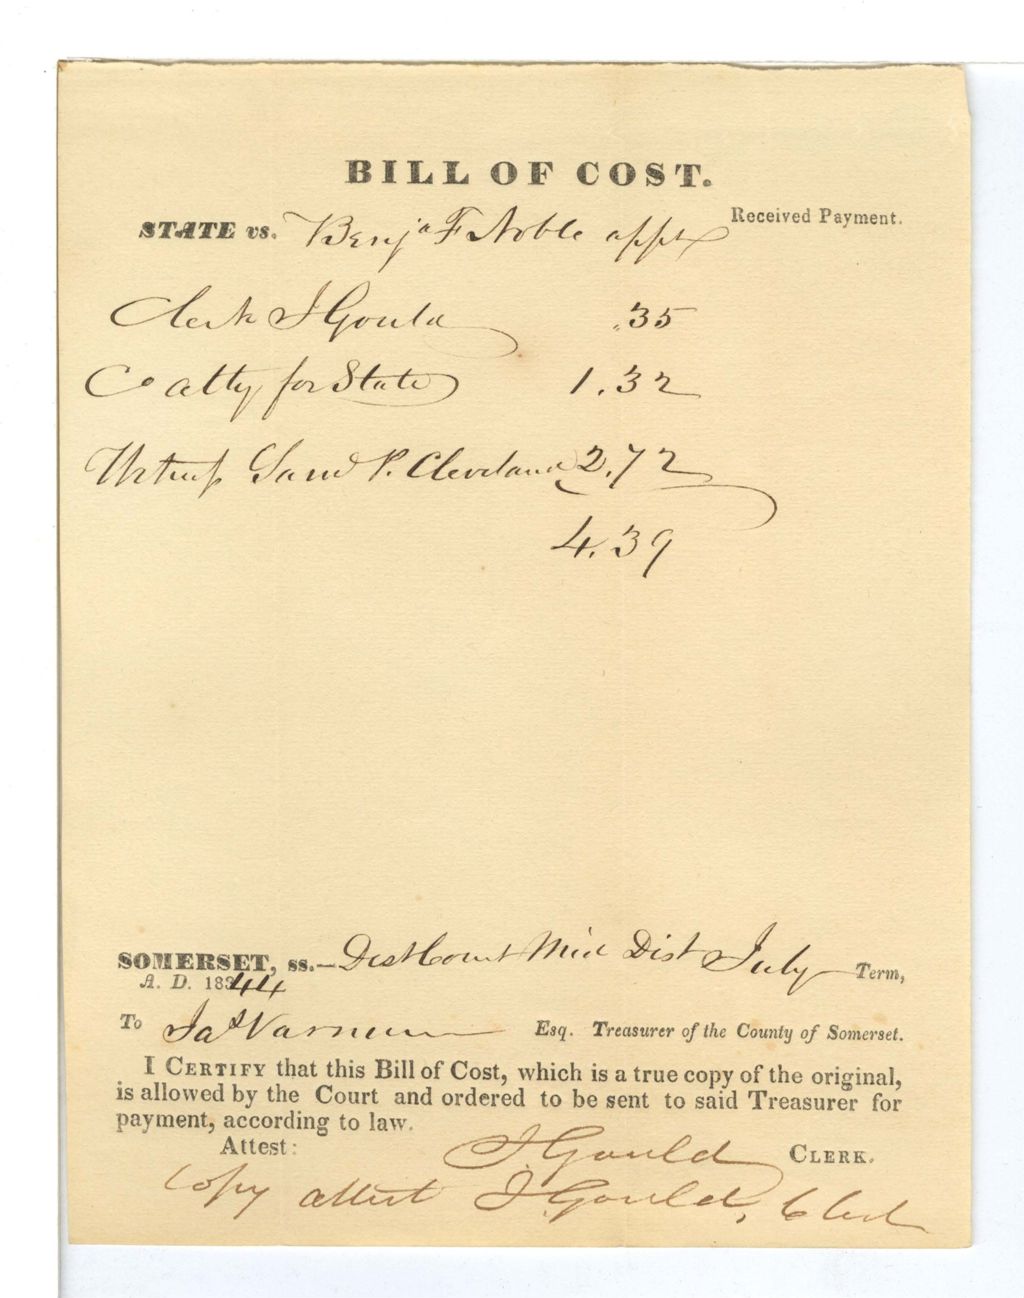 BILL OF COST.
STATE vs. Benja F Noble appt
Received Payment.
Clerk J Gould .35
Co atty for State 1.32
Witness Saml P. Cleveland 2.72
4.39
SOMERSET, ss.—Dist Court Mid Dist July Term,
A. D. 1844
To Jas Varnum Esq. Treasurer of the County of Somerset.
I CERTIFY that this Bill of Cost, which is a true copy of the original,
is allowed by the Court and ordered to be sent to said Treasurer for
payment, according to law.
Attest: J Gould CLERK.
Copy attest J Gould, Clerk